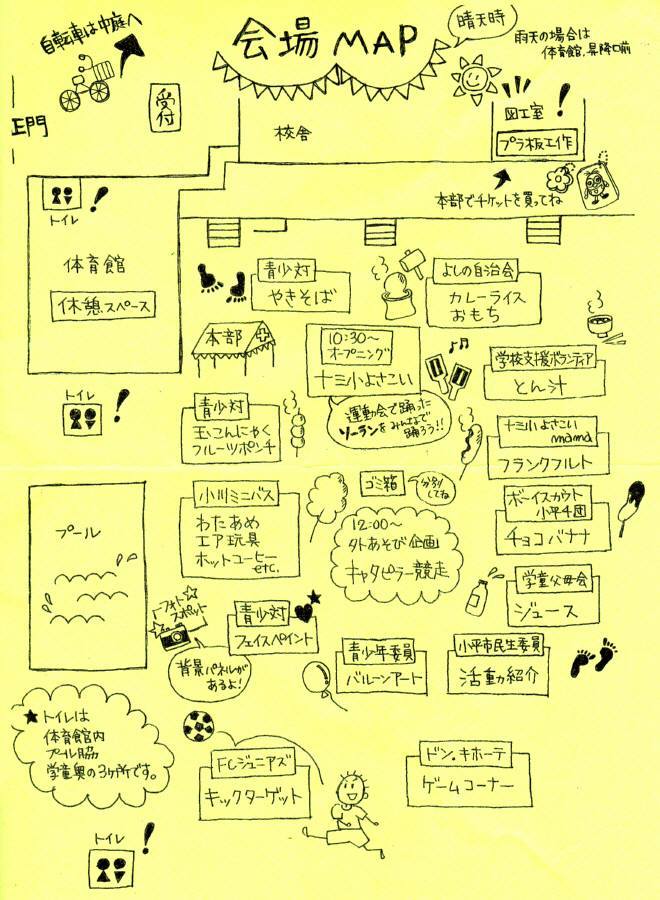 会場 MAP
晴天時
雨天の場合は
体育館、昇降口前
自転車は中庭へ
正門
受付
校舎
図工室
プラ板工作
本部でチケットを買ってね
トイレ
体育館
休憩スペース
青少対
やきそば
よしの自治会
カレーライス
おもち
本部
10:30～
オープニング
十三小よさこい
運動会で踊った
ソーランをみんなで
踊ろう!!
学校支援ボランティア
とん汁
トイレ
青少対
玉こんにゃく
フルーツポンチ
十三小よさこい
mama
フランクフルト
プール
小川ミニバス
わたあめ
エア玩具
ホットコーヒー
etc.
ゴミ箱
分別
してね
12:00～
外あそび企画
キャタピラー競走
ボーイスカウト
小平4団
チョコバナナ
学童父母会
ジュース
フォト
スポット
背景パネルが
あるよ!
青少対
フェイスペイント
青少年委員
バルーンアート
小平市民生委員
活動紹介
★トイレは
体育館内
プール脇
学童奥の3ヶ所です。
FCジュニアズ
キックターゲット
ドン.キホーテ
ゲームコーナー
トイレ